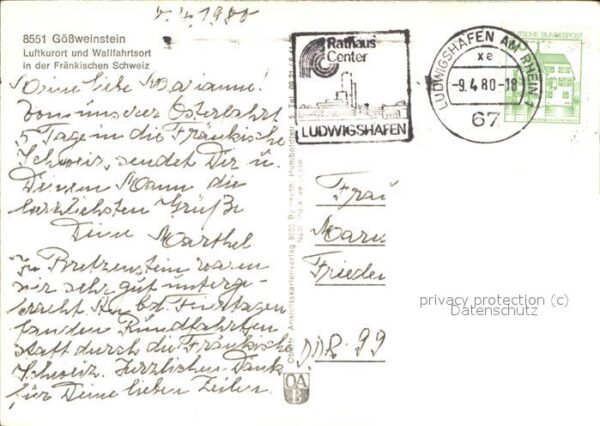 5.4.1980
8551 Gößweinstein
Luftkurort und Wallfahrtsort
in der Fränkischen Schweiz
Meine liebe Marianne.
Von unserer Osterfahrt
5 Tage in die Fränkische
Schweiz, sendet Dir u.
Deinem Mann die
herzlichsten Grüße
Deine Marthel
In Bretzenstein waren
wir sehr gut unterge-
bracht. An bd. Feiertagen
fanden Rundfahrten
statt durch die Fränkische
Schweiz. Herzlichen Dank
für Deine lieben Zeilen.
Rathaus
Center
LUDWIGSHAFEN
LUDWIGSHAFEN AM RHEIN 1
xe
-9.4.80-18
67
DEUTSCHE BUNDESPOST
Ansichtskartenverlag Bayreuth
Frau
Frieder
DDR 99
privacy protection (c)
Datenschutz
OA
B